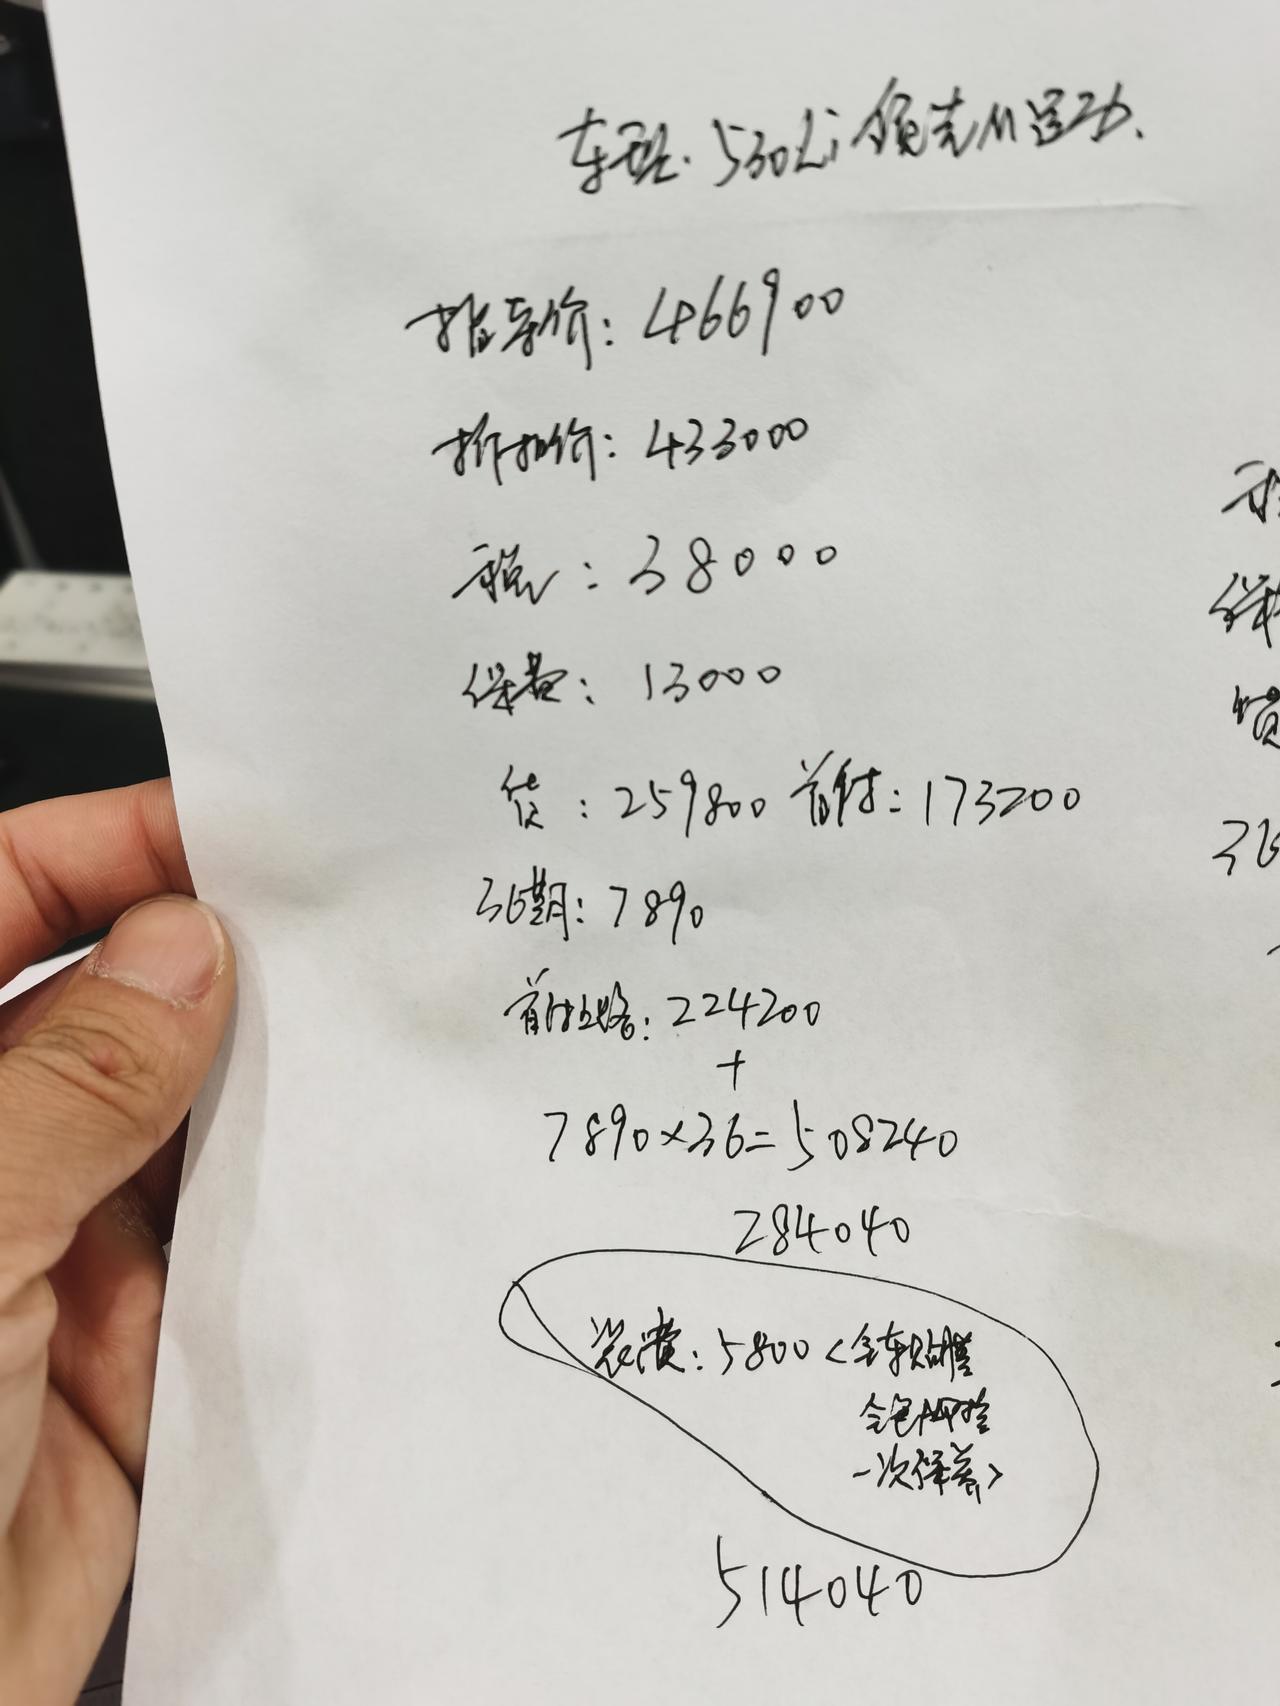 车型:530Li 领先M运动.
指导价:466900
折扣价:433000
税:38000
保费:13000
贷:259800 首付:173200
36期:7890
首付上路:224200
+
7890×36=508240
284040
装潢:5800<全车贴膜
全包脚垫
一次保养>
514040
税
保
贷
36